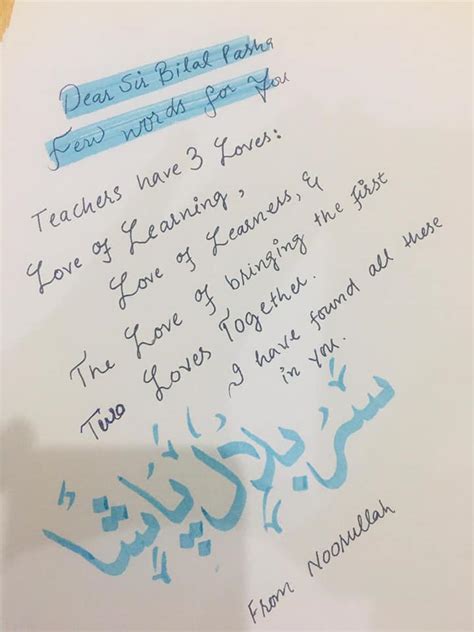 Dear Sir Bilal Pasha
Few words for You
Teachers have 3 Loves:
Love of Learning,
Love of Learners, &
The Love of bringing the first
Two Loves Together.
I have found all these
in you.
سَر بلال پاشا
From Noorullah